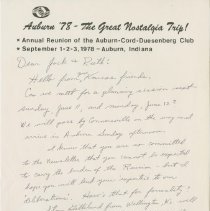 Auburn '78 - The Great Nostalgia Trip!
• Annual Reunion of the Auburn-Cord-Duesenberg Club
• September 1-2-3, 1978 - Auburn, Indiana
Dear Jack & Ruth:
Hello from Kansas friends.
Can we meet for a planning session next
Sunday, June 11, and Monday, June 12?
We will pass by Connersville on the way and
arrive in Auburn Sunday afternoon.
I know that you are now committed
to the Newsletter that you cannot be expected
to carry the burden of the Reunion - but I
hope you will lend your expertise to our
deliberations! How's that for formality!
from Wellington Ks will